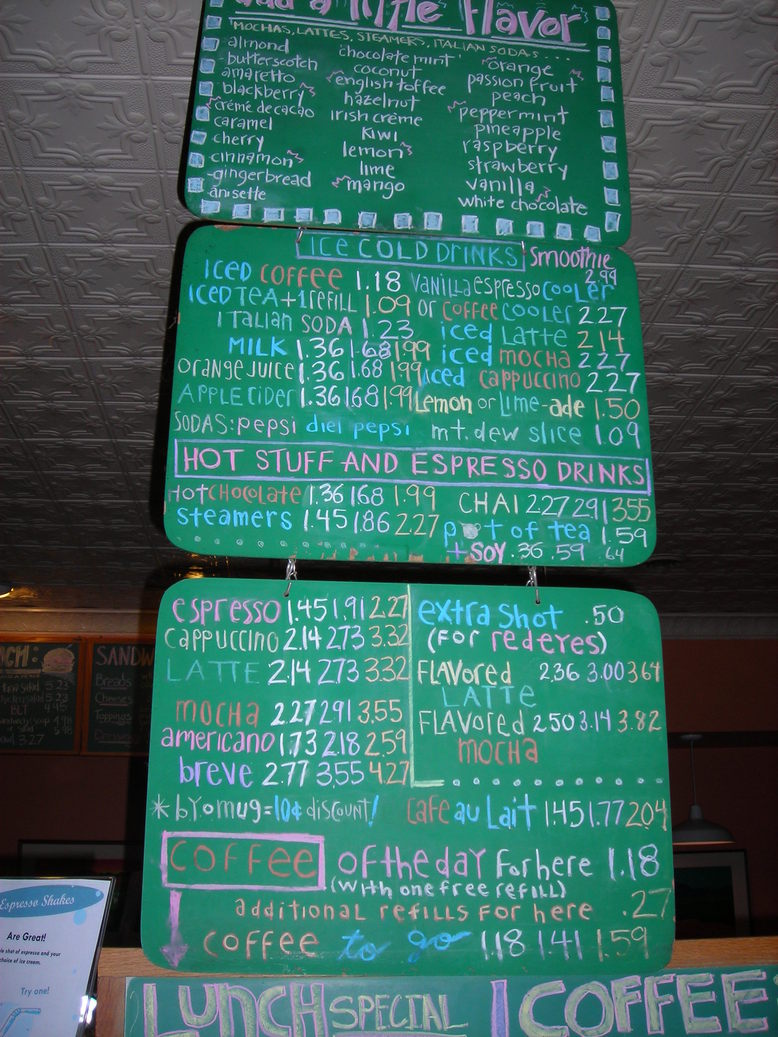 add a little flavor
MOCHAS, LATTES, STEAMERS, ITALIAN SODAS...
almond
butterscotch
amaretto
blackberry
créme de cacao
caramel
cherry
cinnamon
gingerbread
anisette
chocolate mint
coconut
english toffee
hazelnut
irish créme
kiwi
lemon
lime
mango
orange
passion fruit
peach
peppermint
pineapple
raspberry
strawberry
vanilla
white chocolate
ICE COLD DRINKS
Smoothie 2.99
ICED COFFEE 1.18
ICED TEA + 1 refill 1.09
ITALIAN SODA 1.23
MILK 1.36 1.68 1.99
orange juice 1.36 1.68 1.99
APPLE CIDER 1.36 1.68 1.99
vanilla espresso cooler
or coffee cooler 2.27
iced Latte 2.14
iced mocha 2.27
iced cappuccino 2.27
Lemon or Lime-ade 1.50
SODAS: pepsi diet pepsi mt. dew slice 1.09
HOT STUFF AND ESPRESSO DRINKS
HOT CHOCOLATE 1.36 1.68 1.99
steamers 1.45 1.86 2.27
CHAI 2.27 2.91 3.55
pot of tea 1.59
+ SOY .36 .59 .64
espresso 1.45 1.91 2.27
cappuccino 2.14 2.73 3.32
LATTE 2.14 2.73 3.32
mocha 2.27 2.91 3.55
americano 1.73 2.18 2.59
breve 2.77 3.55 4.27
extra shot .50
(for redeyes)
FLAVored LATTE 2.36 3.00 3.64
FLAVored mocha 2.50 3.14 3.82
* b.y.o mug = 10¢ discount!
cafe au Lait 1.45 1.77 2.04
COFFEE of the day For here 1.18
(with one free refill)
additional refills for here .27
coffee to go 1.18 1.41 1.59
LUNCH SPECIAL
COFFEE
SANDW
Breads
Cheeses
Toppings
5.23
5.23
BLT 4.45
3.27
Espresso Shakes
Are Great!
shot of espresso and your
choice of ice cream.
Try one!